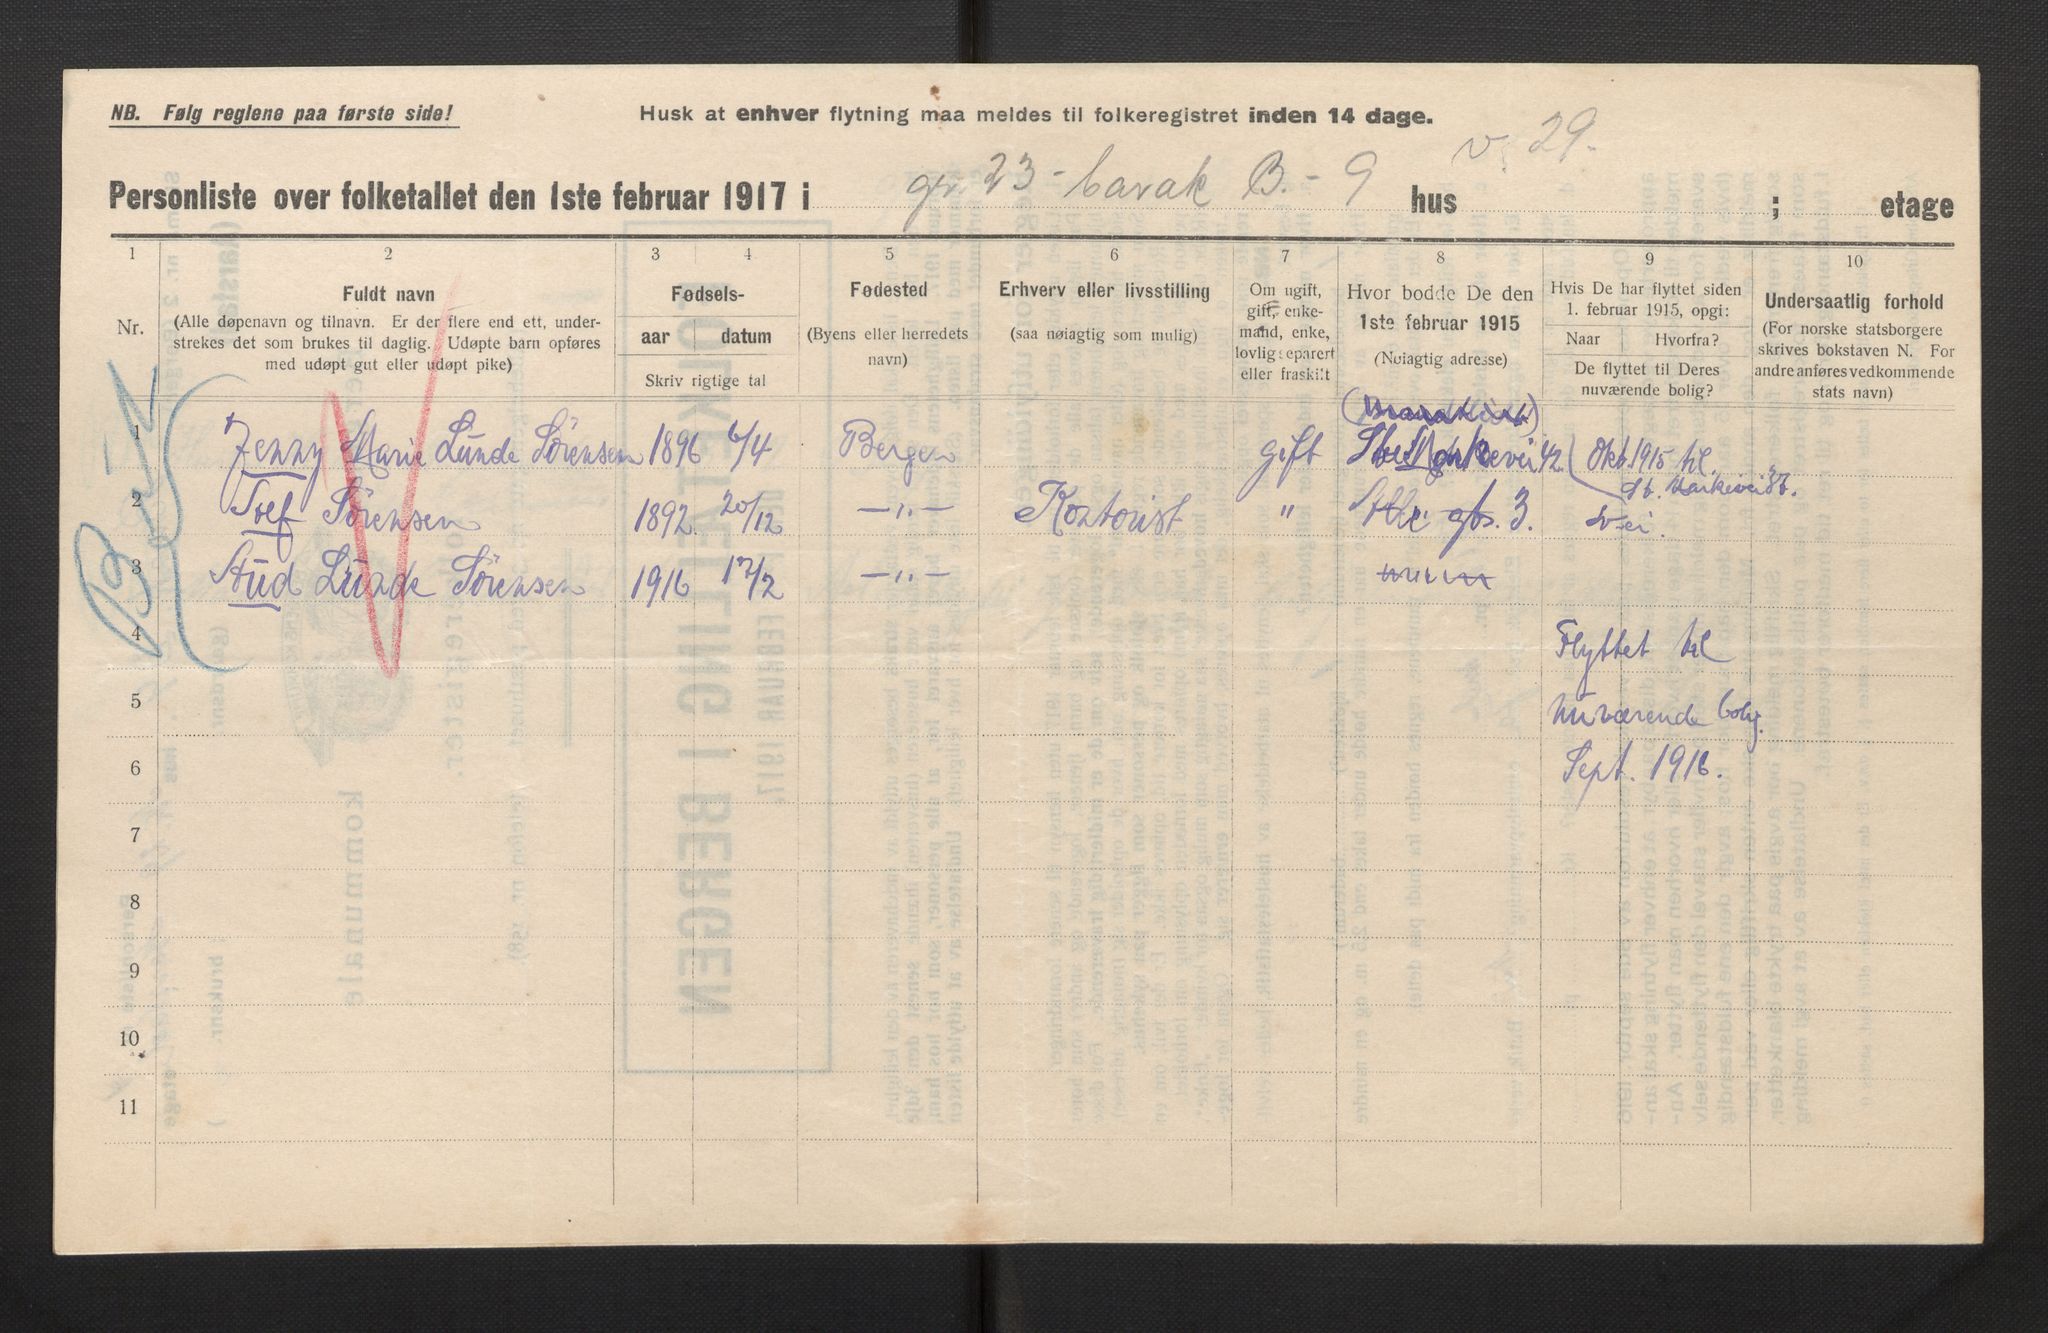 NB. Følg reglene paa første side!
Husk at enhver flytning maa meldes til folkeregistret inden 14 dage.
v. 29.
Personliste over folketallet den 1ste februar 1917 i gr. 23 - barak B. - 9 hus ; etage
1 2 3 4 5 6 7 8 9 10
Nr.
Fuldt navn
(Alle døpenavn og tilnavn. Er der flere end ett, under-
strekes det som brukes til daglig. Udøpte barn opføres
med udøpt gut eller udøpt pike)
Fødsels-
aar datum
Skriv rigtige tal
Fødested
(Byens eller herredets
navn)
Erhverv eller livsstilling
(saa nøiagtig som mulig)
Om ugift,
gift, enke-
mand, enke,
lovlig separert
eller fraskilt
Hvor bodde De den
1ste februar 1915
(Nøiagtig adresse)
Hvis De har flyttet siden
1. februar 1915, opgi:
Naar Hvorfra?
De flyttet til Deres
nuværende bolig?
Undersaatlig forhold
(For norske statsborgere
skrives bokstaven N. For
andre anføres vedkommende
stats navn)
1 Jenny Marie Lunde Sörensen 1896 6/4 Bergen gift 42 Okt. 1915 til
2 Sörensen 1892 20/12 —"— Kontorist " 3.
3 Aud Lunde Sörensen 1916 12/2 —"—
4 Flyttet til
5 nuværende bolig
6 Sept. 1916.
7
8
9
10
11